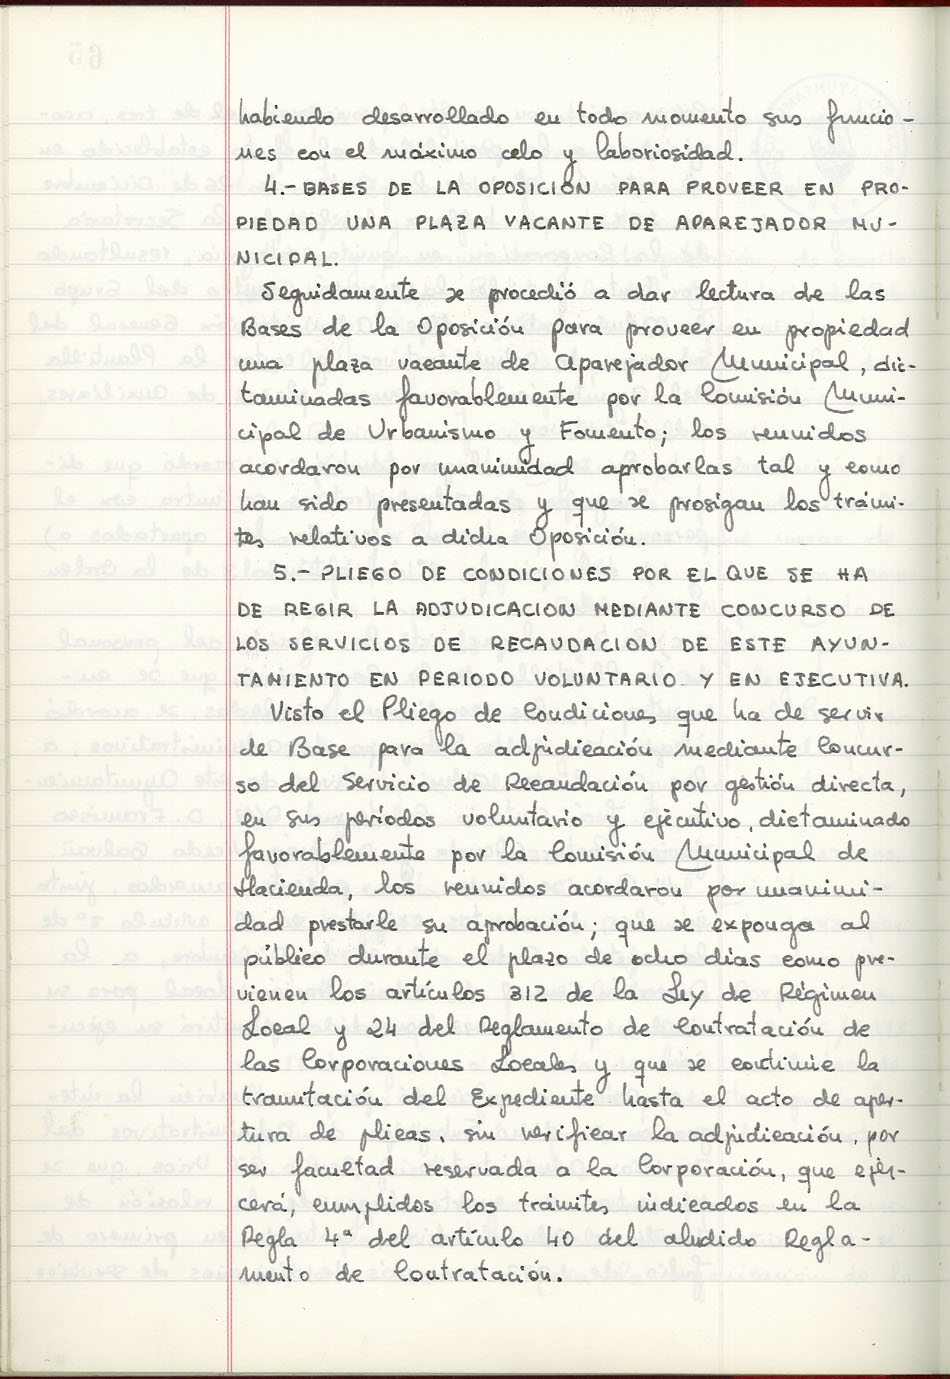 habiendo desarrollado en todo momento sus funcio-
nes con el máximo celo y laboriosidad.
4.- BASES DE LA OPOSICIÓN PARA PROVEER EN PRO-
PIEDAD UNA PLAZA VACANTE DE APAREJADOR MU-
NICIPAL.
Seguidamente se procedió a dar lectura de las
Bases de la Oposición para proveer en propiedad
una plaza vacante de Aparejador Municipal, dic-
taminadas favorablemente por la Comisión Muni-
cipal de Urbanismo y Fomento; los reunidos
acordaron por unanimidad aprobarlas tal y como
han sido presentadas y que se prosigan los trámi-
tes relativos a dicha Oposición.
5.- PLIEGO DE CONDICIONES POR EL QUE SE HA
DE REGIR LA ADJUDICACION MEDIANTE CONCURSO DE
LOS SERVICIOS DE RECAUDACION DE ESTE AYUN-
TAMIENTO EN PERIODO VOLUNTARIO Y EN EJECUTIVA.
Visto el Pliego de Condiciones que ha de servir
de Base para la adjudicación mediante Concur-
so del Servicio de Recaudación por gestión directa,
en sus períodos voluntario y ejecutivo, dictaminado
favorablemente por la Comisión Municipal de
Hacienda, los reunidos acordaron por unanimi-
dad prestarle su aprobación; que se exponga al
público durante el plazo de ocho días como pre-
vienen los artículos 312 de la Ley de Régimen
Local y 24 del Reglamento de Contratación de
las Corporaciones Locales y que se continúe la
tramitación del Expediente hasta el acto de aper-
tura de plicas, sin verificar la adjudicación, por
ser facultad reservada a la Corporación, que ejer-
cerá, cumplidos los trámites indicados en la
Regla 4ª del artículo 40 del aludido Regla-
mento de Contratación.